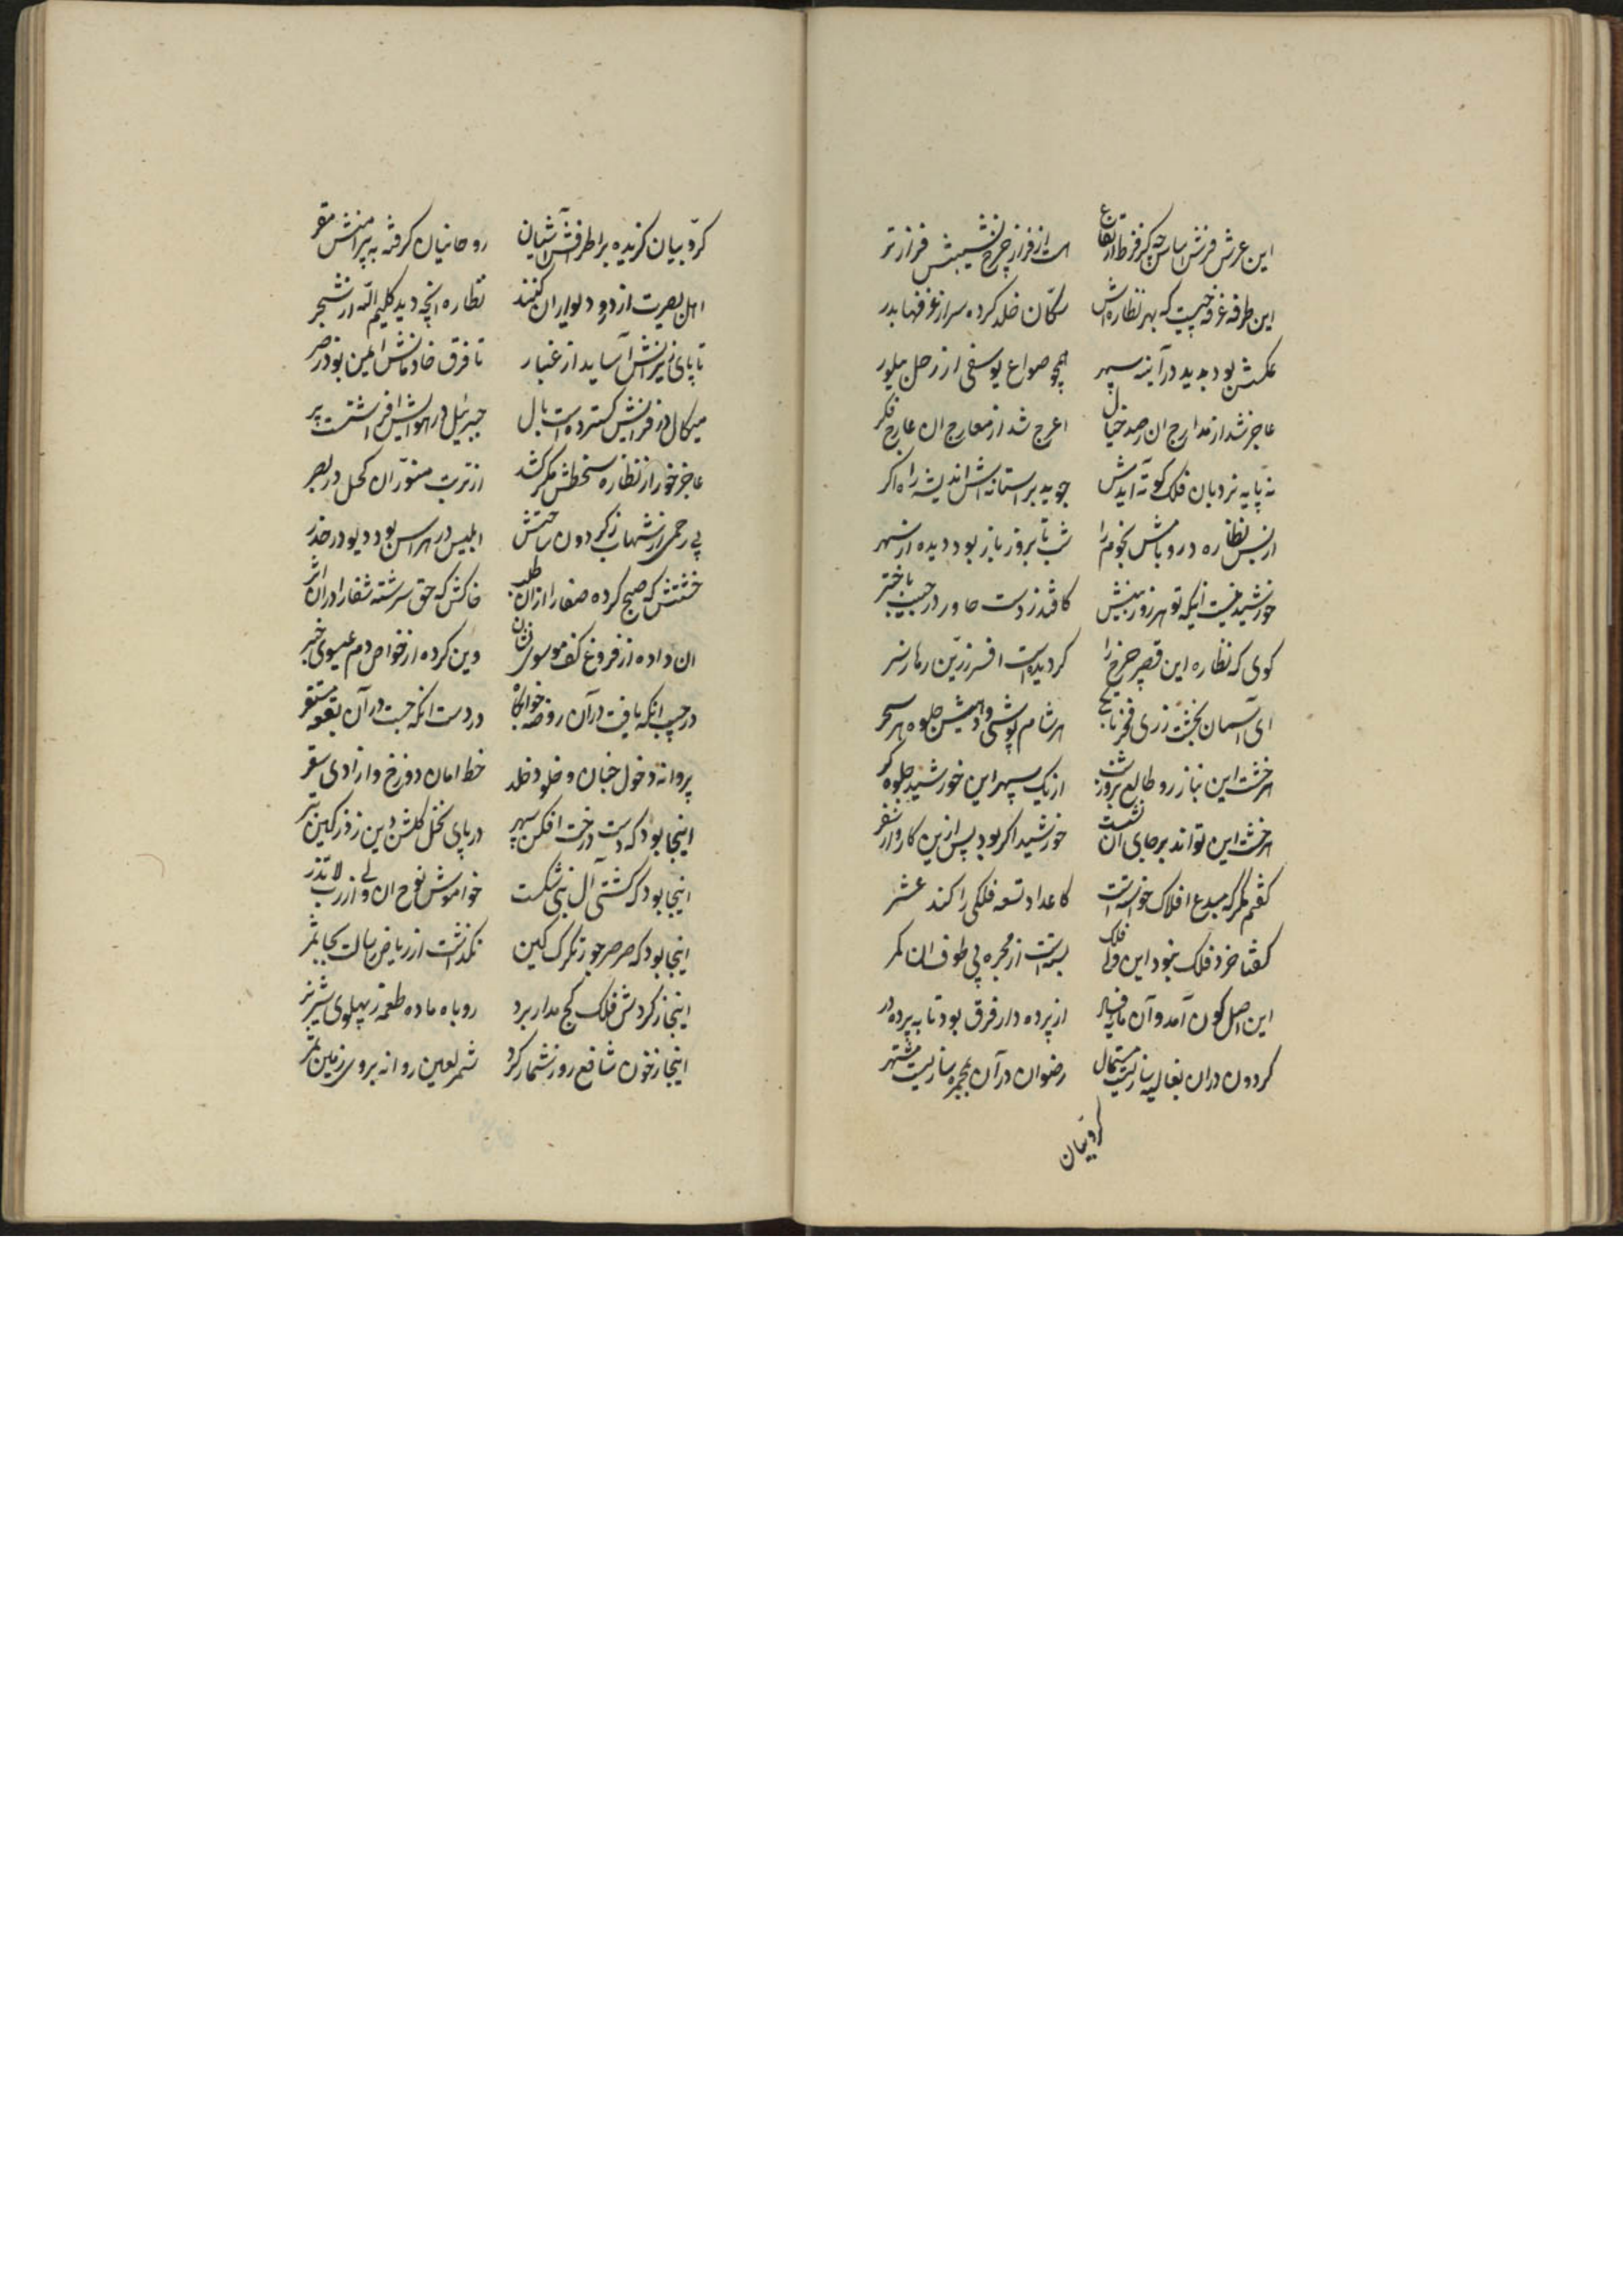 این عرش فرش ساحه کز فرط ارتفاع است از فراز چرخ نشیبش فراز تر
این طرفه غرفه چیست که بهر نظاره‌اش سکّان خلد کرده سر از غرفها بدر
عکسش بود پدید در آینه سپهر همچو صواع یوسفی از رحل ابن یامین
عاجز شد از مدارج ان رصد خیال اعرج شد از معارج ان عارج فکر
نه پایه نردبان فلک کوته آیدش جوید بر استانه‌اش اندیشه راه اکر
از بس نظاره در و بامش نجوم را شب تا بروز باز بود دیده از سهر
خورشید نیست اینکه تو هر روز بینیش کافتد ز دست خاور در جیب باختر
کوی که نظاره این قصر چرخ را کردیده است افسر زرین رها ز سر
ای آسمان بخشت زری فخر تا بکی هر شام پوشی و دهیش جلوه هر سحر
هر خشت این نیاز رو طالع بروز شب از یک سپهر این خورشید جلوه کر
هر خشت این تواند بر جای ان نشست خورشید اکر بود پس ازین کار و ار سفر
کفتم مکر که مبدع افلاک خواسته است کاعداد تسعه فلکی را کند عشر
کفتا خرد فلک نبود این ولی فلک بسته است از مجره پی طوف ان کمر
این اصل کون آمد و آن مافیه از پرده دار فرق بود تا به پرده در
کردون دران نعالیه سازیست مستمال رضوان در آن بمجمره سازیست مشتهر
کروبیان
کرّوبیان کزیده بر اطرافش آشیان روحانیان کرفته به پیرامنش مقر
اهل بصیرت از در و دیوار ان کنند نظاره انچه دید کلیم الله از شجر
تا پای زایرانش آساید از غبار تا فرق خادمانش ایمن بود ز ضر
میکال در فرازش کسترده است بال جبرئیل در هوایش افراشتست پر
عاجز خور از نظاره سخطش مکر کشد از تربت منوّر ان کحل در بصر
پی رحمی از شهاب ز کردون ساحتش ابلیس در هراس بود دیو در حذر
خشتش که صبح کرده صفا را ازان طلب خاکش که حق سرشته شفا را دران اثر
ان داده از فروغ کف موسوی نشان وین کرده از خواص دم عیسوی خبر
در جیب انکه یافت در آن روضه خوابکاه در دست انکه جست در آن بقعه مستقر
پروانه دخول جنان و خلود خلد خط امان دوزخ و ازادی سقر
اینجا بود که دست درخت افکن سپهر در پای نخل کلشن دین زد ز کین تبر
اینجا بود که کشتی آل نبی شکست خواموش نوح ان ولی از رب لا تذر
اینجا بود که صرصر جور تکرک کین نکذاشت از ریاض رسالت بجا ثمر
اینجا ز کردش فلک کج مدار برد روباه ماده طعمه ز پهلوی شیر نر
اینجا ز خون شافع روز شمار کرد شمر لعین روانه بروی زمین